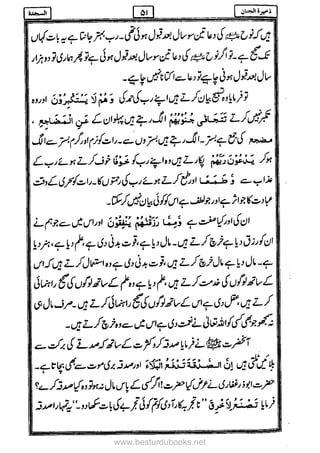 ذخیرۃ الجنان ۵۱ السجدۃ
ہیں کہ نوح علیہ السلام کی دعا تین سو سال بعد قبول ہوئی تھی۔ رب بہتر جانتا ہے یہ بات کہاں
تک صحیح ہے۔ تو اگر نوح علیہ السلام کی دعا تین سو سال بعد قبول ہوئی ہو تو پھر ہماری تو دو ہزار
سال بعد قبول ہونی چاہیے تو دعا سے اکتانا نہیں چاہیے۔
تو فرمایا وہ تسبیح بیان کرتے ہیں اپنے رب کی حمد کی وَهُمْ لَا يَسْتَكْبِرُوْنَ اور وہ
تکبر نہیں کرتے تَتَجَافٰى جُنُوْبُهُمْ الگ رہتے ہیں پہلو ان کے عَنِ الْمَضَاجِعِ،
مضجع کی جمع ہے بستر۔ الگ رہتے ہیں بستروں سے۔ رات کو نرم اور گرم بستر سے الگ
ہو کر يَدْعُوْنَ رَبَّهُمْ پکارتے ہیں وہ اپنے رب کو خَوْفًا خوف کرتے ہوئے رب کے
عذاب سے وَّ طَمَعًا اور طمع کرتے ہوئے رب کی رحمتوں کا۔ رات کو سحری کے وقت
عبادت کا جو اثر ہے اور جو لطف ہے اس کو کوئی بیان نہیں کر سکتا۔
ان کی اور کیا صفت ہے وَّمِمَّا رَزَقْنٰهُمْ يُنْفِقُوْنَ اور اس میں سے جو ہم نے
ان کو رزق دیا ہے خرچ کرتے ہیں۔ مال دیا ہے، قوت بدنی دی ہے، علم دیا ہے، ہنر دیا
ہے۔ مال دیا ہے مال خرچ کرتے ہیں، قوت بدنی دی ہے وہ استعمال کرتے ہیں کہ اس
کے ساتھ لوگوں کی خدمت کرتے ہیں، علم دیا ہے وہ علم کے ساتھ لوگوں کی صحیح راہنمائی
کرتے ہیں، عقل دی ہے اس کے ساتھ لوگوں کی صحیح راہنمائی کرتے ہیں۔ صرف مال ہی
نہ سمجھو جو بھی کسی کو اللہ تعالیٰ نے نعمت دی ہے اس میں سے وہ خرچ کرتے ہیں۔
آنحضرت ﷺ نے فرمایا صدقہ کرو کثرت کے ساتھ کہ صدقے کی برکت سے
بلائیں ٹلتی ہیں اِنَّ الصَّدَقَةَ تَدْفَعُ الْبَلَاءَ اور صدقہ بری موت سے بھی بچاتا ہے۔
حضرت ابوذر غفاری ﷜ نے عرض کیا حضرت! اگر کسی کے پاس مال نہ ہو تو وہ کیا صدقہ کرے؟
فرمایا تَصْنَعُ لِاَخْرَقَ ”ناتجربہ کار آدمی کو تم کوئی تجربے کی بات سکھا دو۔“ یہ تمہارا صدقہ
www.besturdubooks.net